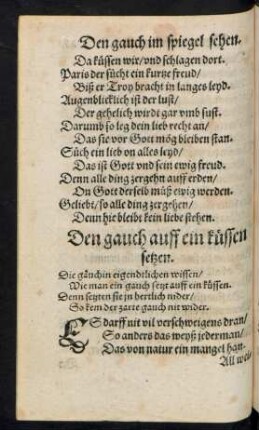 Den gauch im spiegel sehen.
Da küssen wir/ vnd schlagen dort.
Paris der sücht ein kurtze freud/
Biß er Troy bracht in langes leyd.
Augenblicklich ist der lust/
Der gehelich wirdt gar vmb sust.
Darumb so leg dein lieb recht an/
Das sie vor Gott mög bleiben stan.
Süch ein lieb on alles leyd/
Das ist Gott vnd sein ewig freud.
Denn alle ding zergehn auff erden/
Vn Gott derselb müß ewig werden.
Geliebt/ so alle ding zergehen/
Denn hie bleibt kein liebe stehen.
Den gauch auff ein küssen
setzen.
Die gäuchin eigendtlichen wissen/
Wie man ein gauch setzt auff ein küssen.
Denn setzten sie jn hertlich nider/
So kem der zarte gauch nit wider.
ES darff nit vil verschweigens dran/
So anders das weyß jederman/
Das von natur ein mangel han
All wei